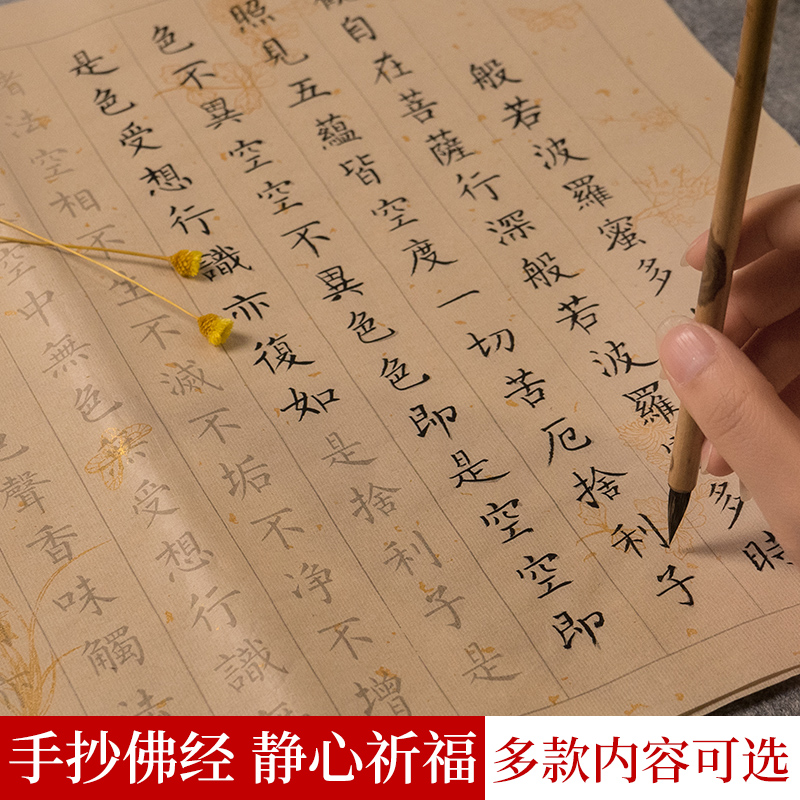 般若波羅蜜多
自在菩薩行深般若波羅多時
照見五蘊皆空度一切苦厄捨利子
色不異空空不異色色即是空空即
是色受想行識亦復如是捨利子是
法空相不生不滅不垢不净不增
空中無色無受想行識
色聲香味觸法
手抄佛经 静心祈福 多款内容可选